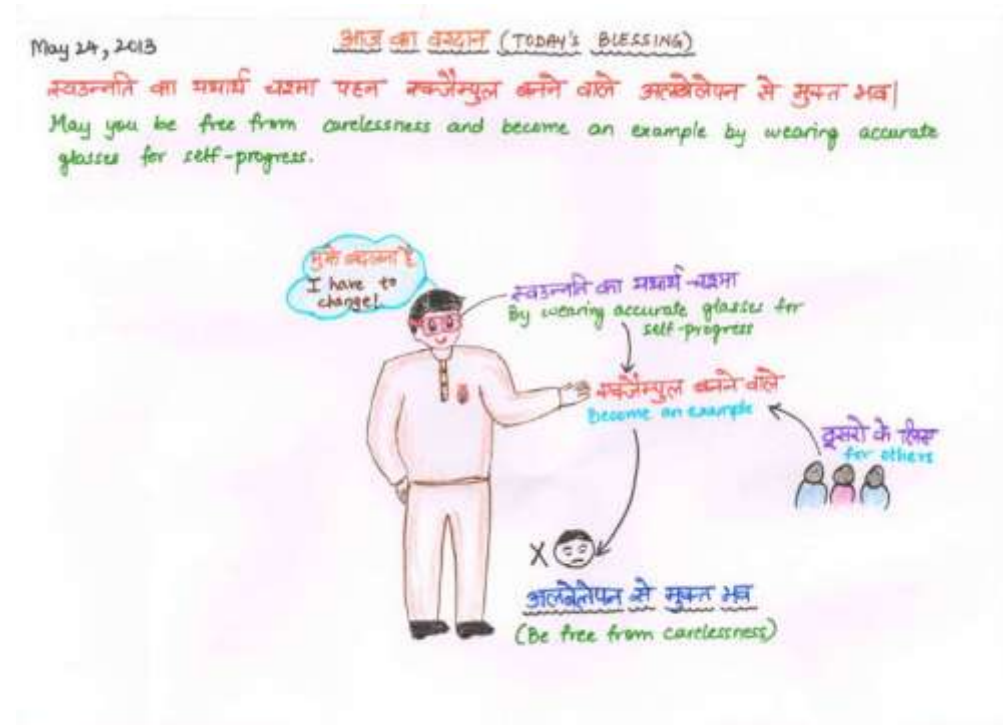 May 24, 2013
आज का वरदान (TODAY'S BLESSING)
स्वउन्नति का यथार्थ चश्मा पहन एक्जैम्पुल बनने वाले अलबेलेपन से मुक्त भव|
May you be free from carelessness and become an example by wearing accurate
glasses for self-progress.
मुझे बदलना है
I have to
change!
स्वउन्नति का यथार्थ चश्मा
By wearing accurate glasses for
self-progress
एक्जैम्पुल बनने वाले
Become an example
दूसरो के लिए
for others
X
अलबेलेपन से मुक्त भव
(Be free from carelessness)